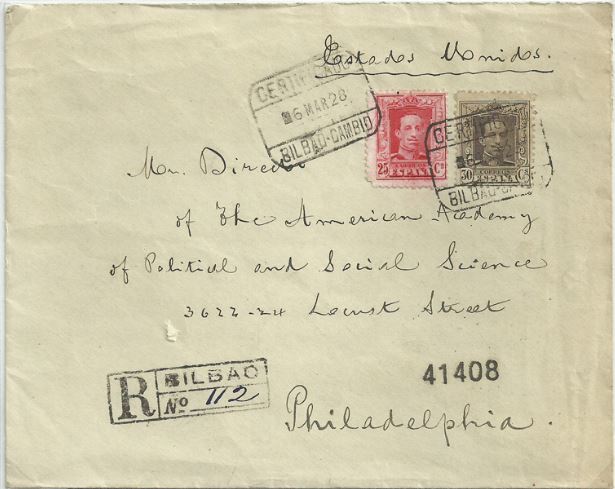 Estados Unidos.
CERTIFICADO
6 MAR 28
BILBAO-CAMBIO
25 CORREOS Cs
ESPAÑA
CERTIFIC
50 CORREOS Cs
ESPAÑA
BILBAO-C
Mr. Director
of The American Academy
of Political and Social Science
3622-24 Locust Street
R BILBAO
No 112
41408
Philadelphia.